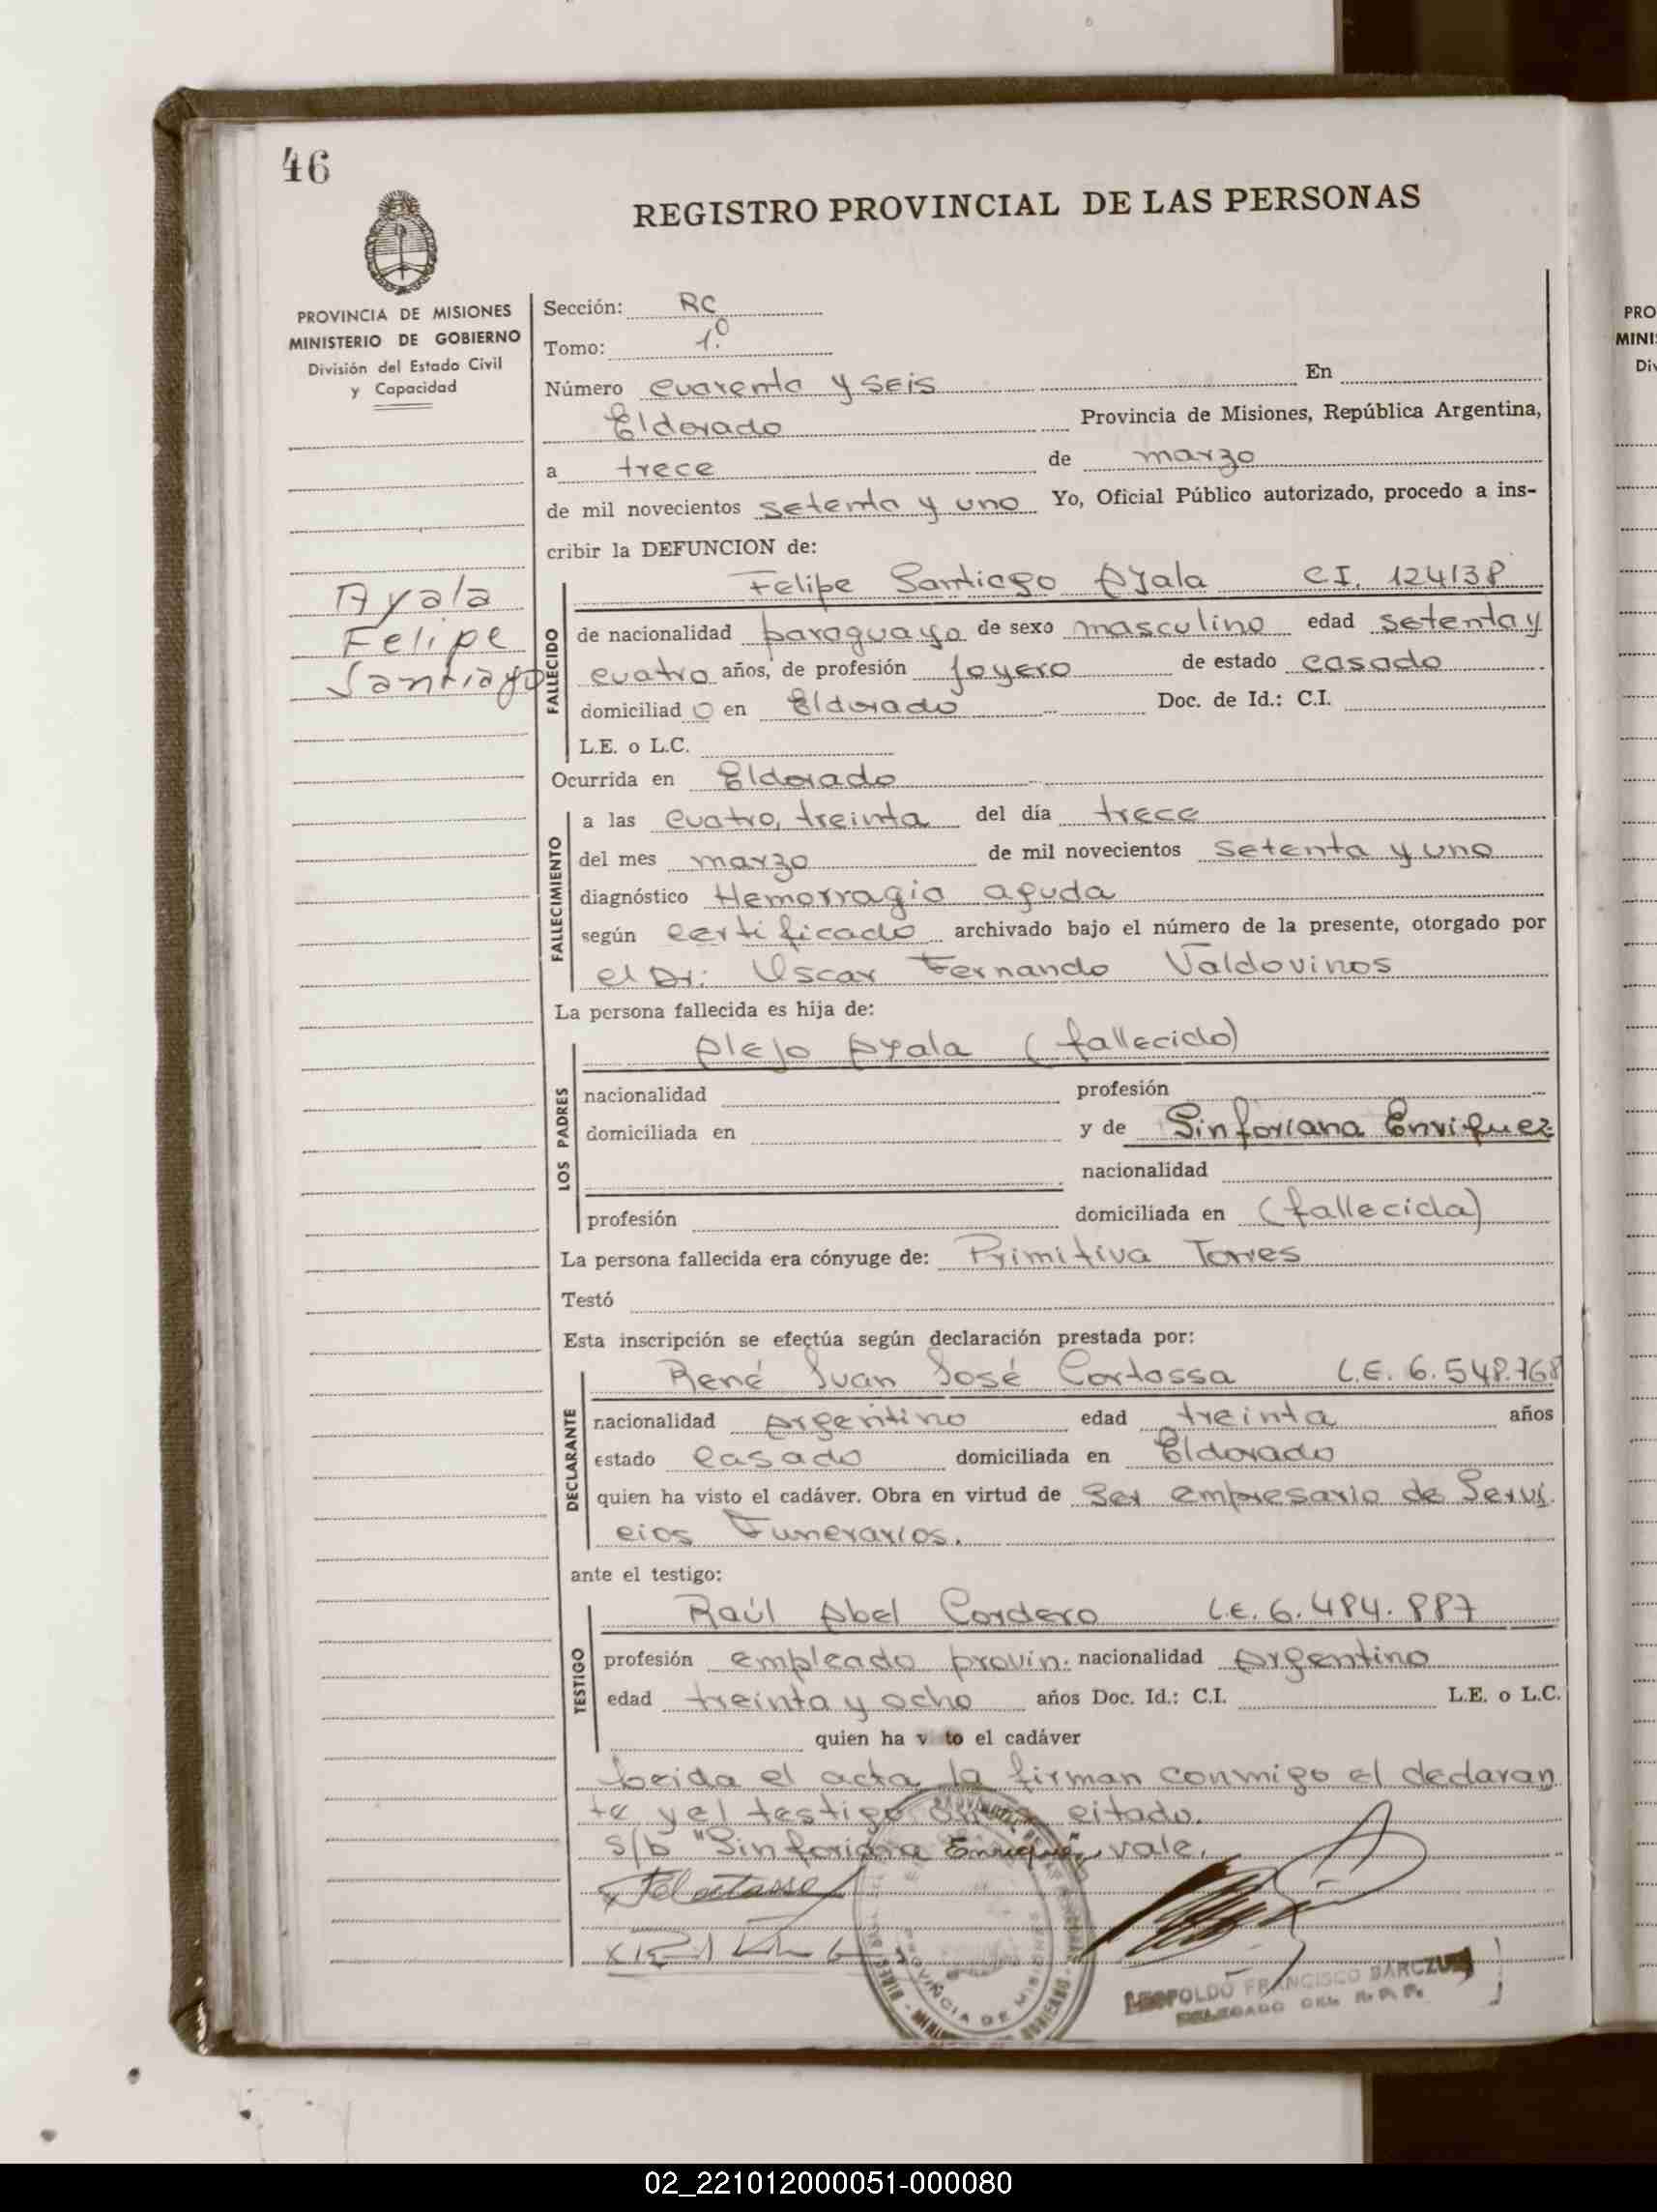 46
REGISTRO PROVINCIAL DE LAS PERSONAS
PROVINCIA DE MISIONES
MINISTERIO DE GOBIERNO
División del Estado Civil
y Capacidad
Ayala
Felipe
Santiago
Sección: RC
Tomo: 1.º
Número cuarenta y seis En
Eldorado Provincia de Misiones, República Argentina,
a trece de marzo
de mil novecientos setenta y uno Yo, Oficial Público autorizado, procedo a ins-
cribir la DEFUNCION de:
FALLECIDO
Felipe Santiago Ayala C.I. 124138
de nacionalidad paraguaya de sexo masculino edad setenta y
cuatro años, de profesión joyero de estado casado
domiciliad o en Eldorado Doc. de Id.: C.I.
L.E. o L.C.
Ocurrida en Eldorado
FALLECIMIENTO
a las cuatro, treinta del día trece
del mes marzo de mil novecientos setenta y uno
diagnóstico Hemorragia aguda
según certificado archivado bajo el número de la presente, otorgado por
el Dr: Oscar Fernando Valdovinos
La persona fallecida es hija de:
LOS PADRES
Alejo Ayala (fallecido)
nacionalidad profesión
domiciliada en y de Sinforiana Enriquez
nacionalidad
profesión domiciliada en (fallecida)
La persona fallecida era cónyuge de: Primitiva Torres
Testó
Esta inscripción se efectúa según declaración prestada por:
DECLARANTE
René Juan José Cortassa L.E. 6.548.768
nacionalidad Argentino edad treinta años
estado casado domiciliada en Eldorado
quien ha visto el cadáver. Obra en virtud de ser empresario de Servi
cios Funerarios.
ante el testigo:
TESTIGO
Raúl Abel Cordero L.E. 6.484.887
profesión empleado provin. nacionalidad Argentino
edad treinta y ocho años Doc. Id.: C.I. L.E. o L.C.
quien ha v to el cadáver
Leida el acta la firman conmigo el declaran
te y el testigo citado.
s/b "Sinforiana Enriquez" vale.
LEOPOLDO FRANCISCO BARCZUK
DELEGADO DEL R. P. P.
PROVINCIA DE MISIONES
PRO
MINI
Div
02_221012000051-000080